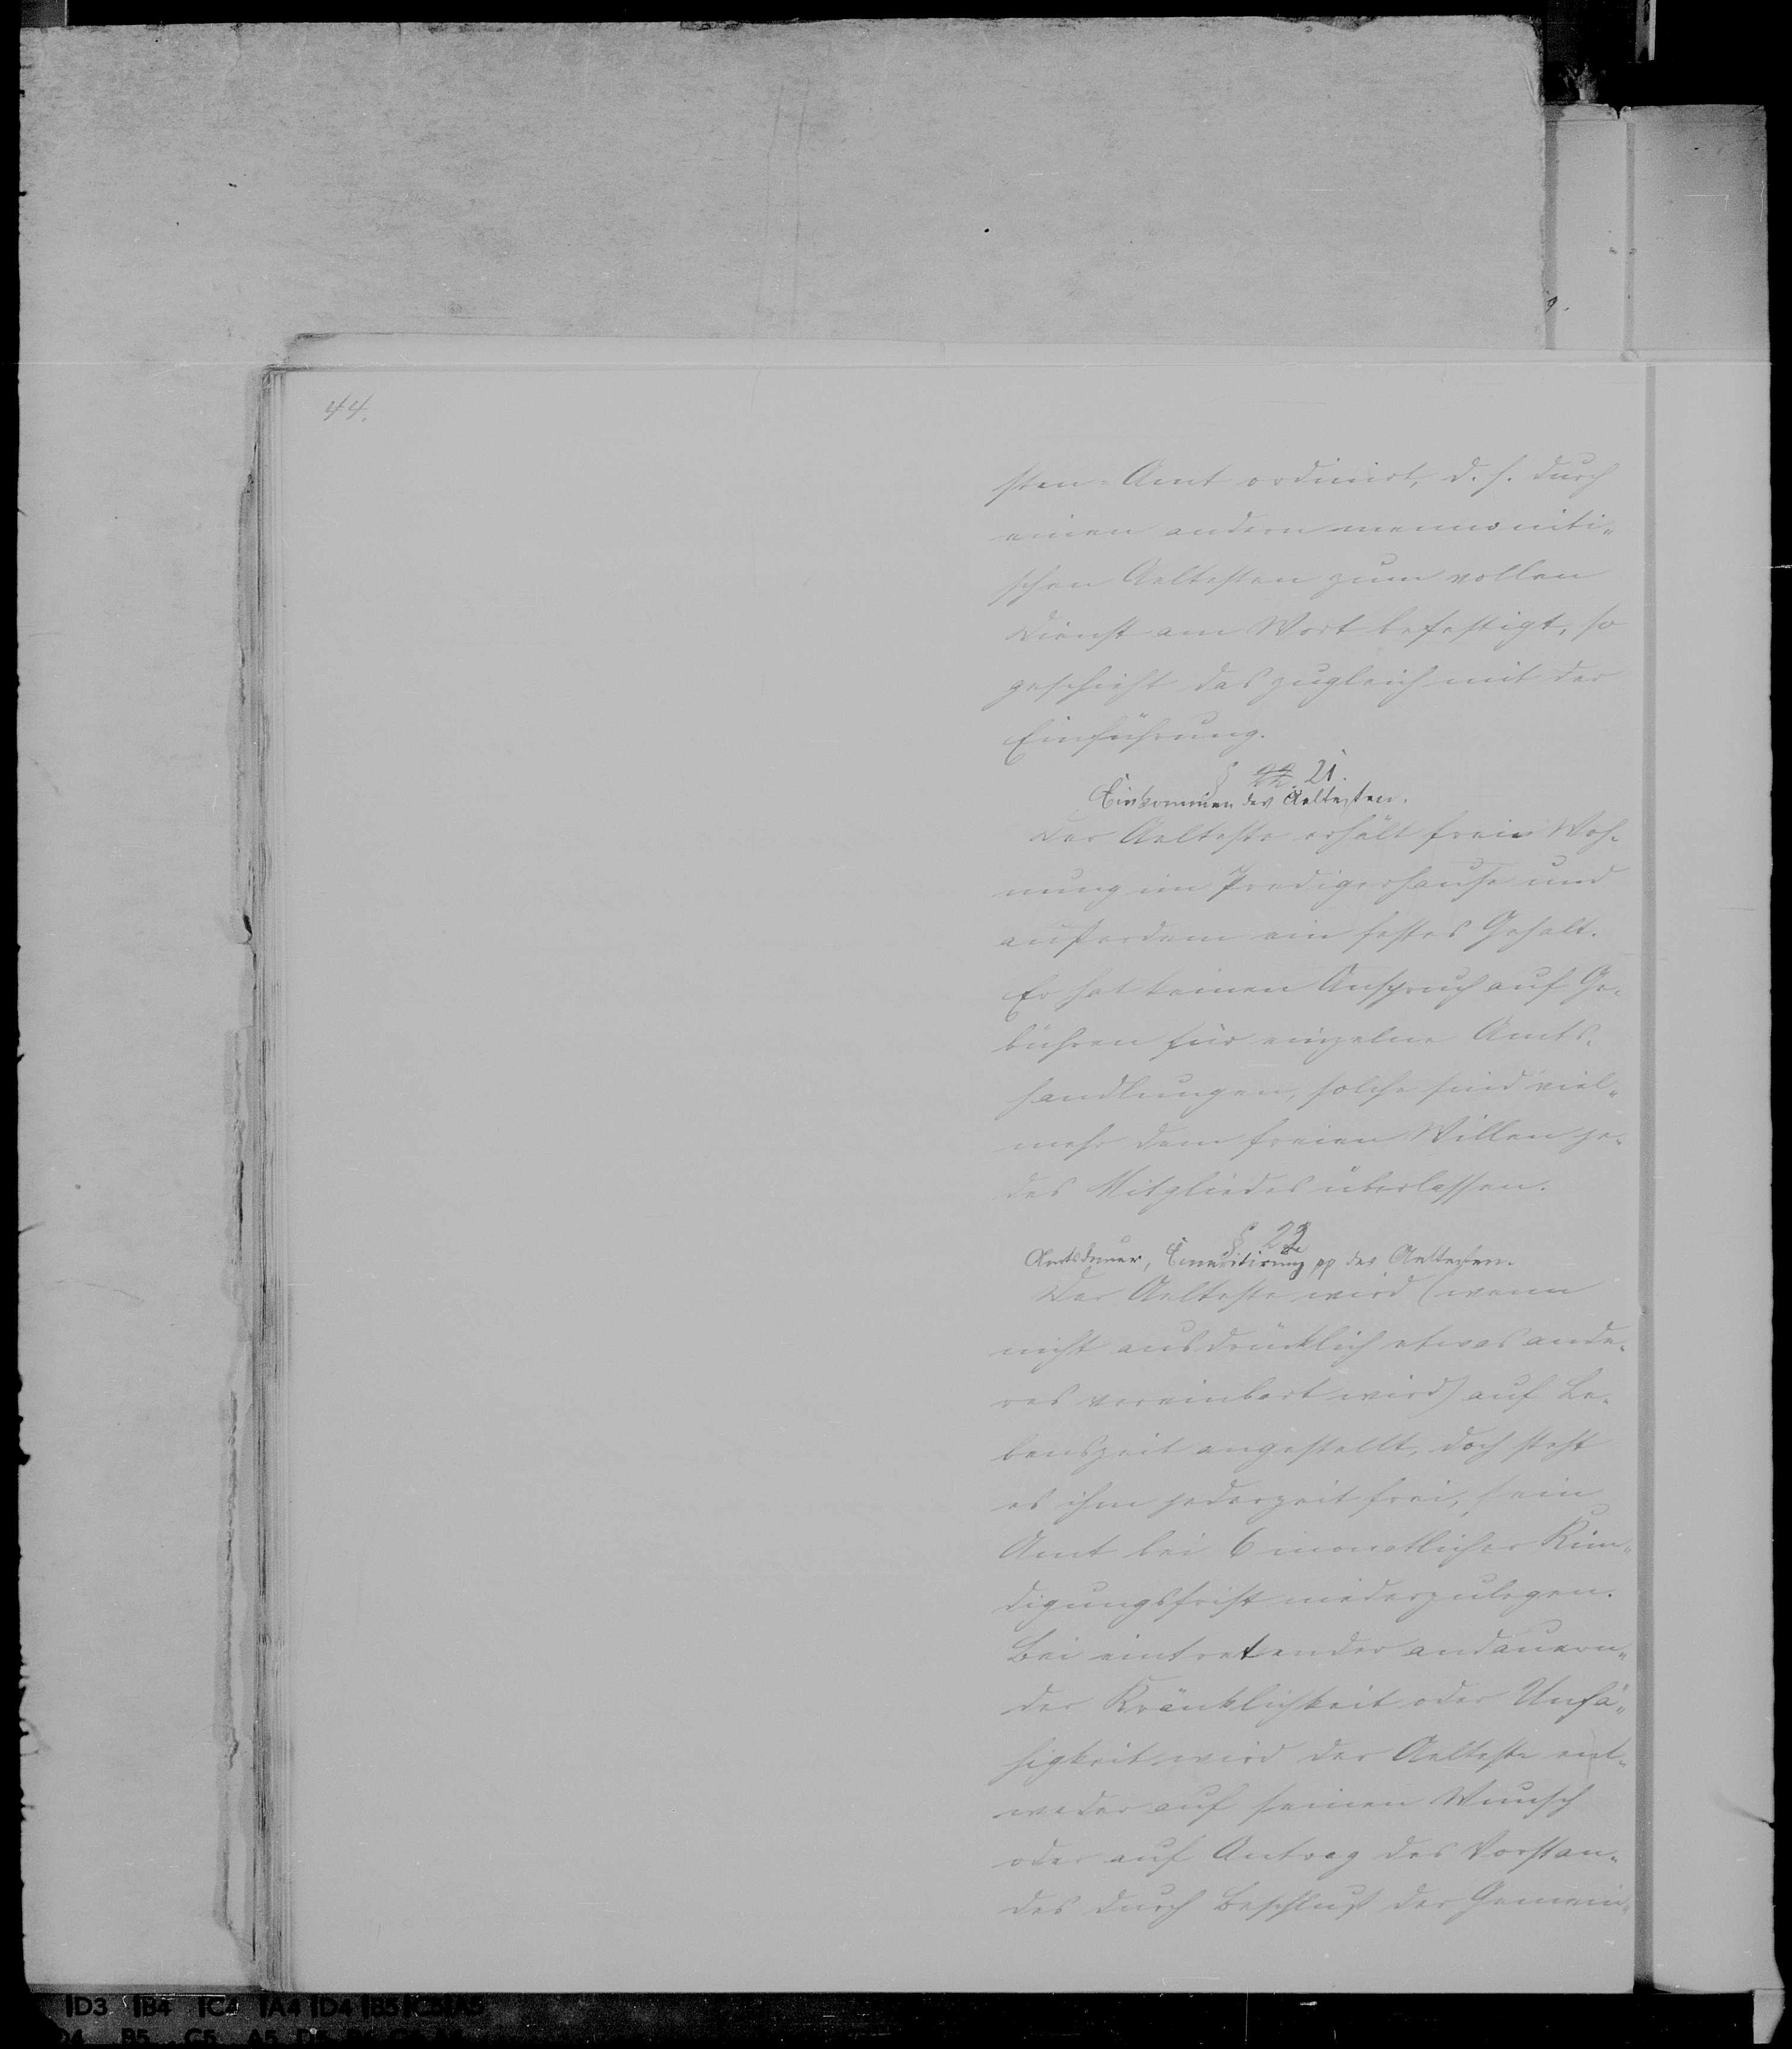 44.
sten-Amt ordinirt, d. h. durch
einen andern mennoniti-
schen Aeltesten zum vollen
Dienst am Wort befestigt, so
geschieht das zugleich mit der
Einführung.
§ 21.
Einkommen des Aeltesten.
Der Aelteste erhält freie Woh-
nung im Predigerhause und
außerdem ein festes Gehalt.
Er hat keinen Anspruch auf Ge-
bühren für einzelne Amts-
handlungen, solche sind viel-
mehr dem freien Willen je-
des Mitgliedes überlassen.
§ 22
Amtsdauer, Emeritirung pp des Aeltesten.
Der Aelteste wird (wenn
nicht ausdrücklich etwas ande-
res vereinbart wird) auf Le-
benszeit angestellt, doch steht
es ihm jederzeit frei, sein
Amt bei 6 monatlicher Kün-
digungsfrist niederzulegen.
Bei eintretender andauern-
der Kränklichkeit oder Unfä-
higkeit wird der Aelteste ent-
weder auf seinen Wunsch
oder auf Antrag des Vorstan-
des durch Beschluß der Gemein-
D3 B4 C4 A4 D4 B5 C5 A5
D4 B5 C5 A5